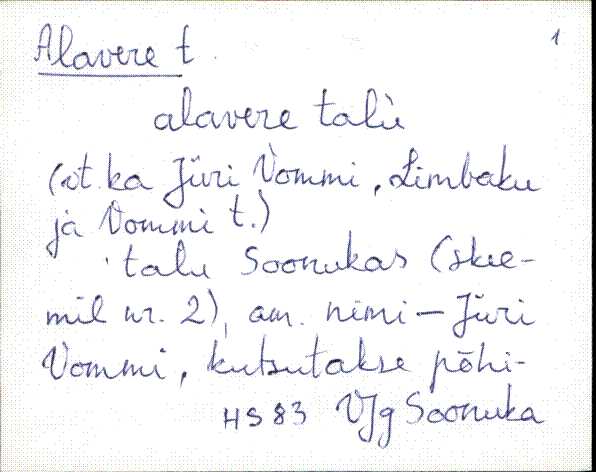 Alavere t. 1
alavere talù
(vt. ka Jüri Vommi, Limbaku
ja Vommi t.)
talu Soonukas (skee-
mil nr. 2), am. nimi – Jüri
Vommi, kutsutakse põhi-
HS 83 VJg Soonuka